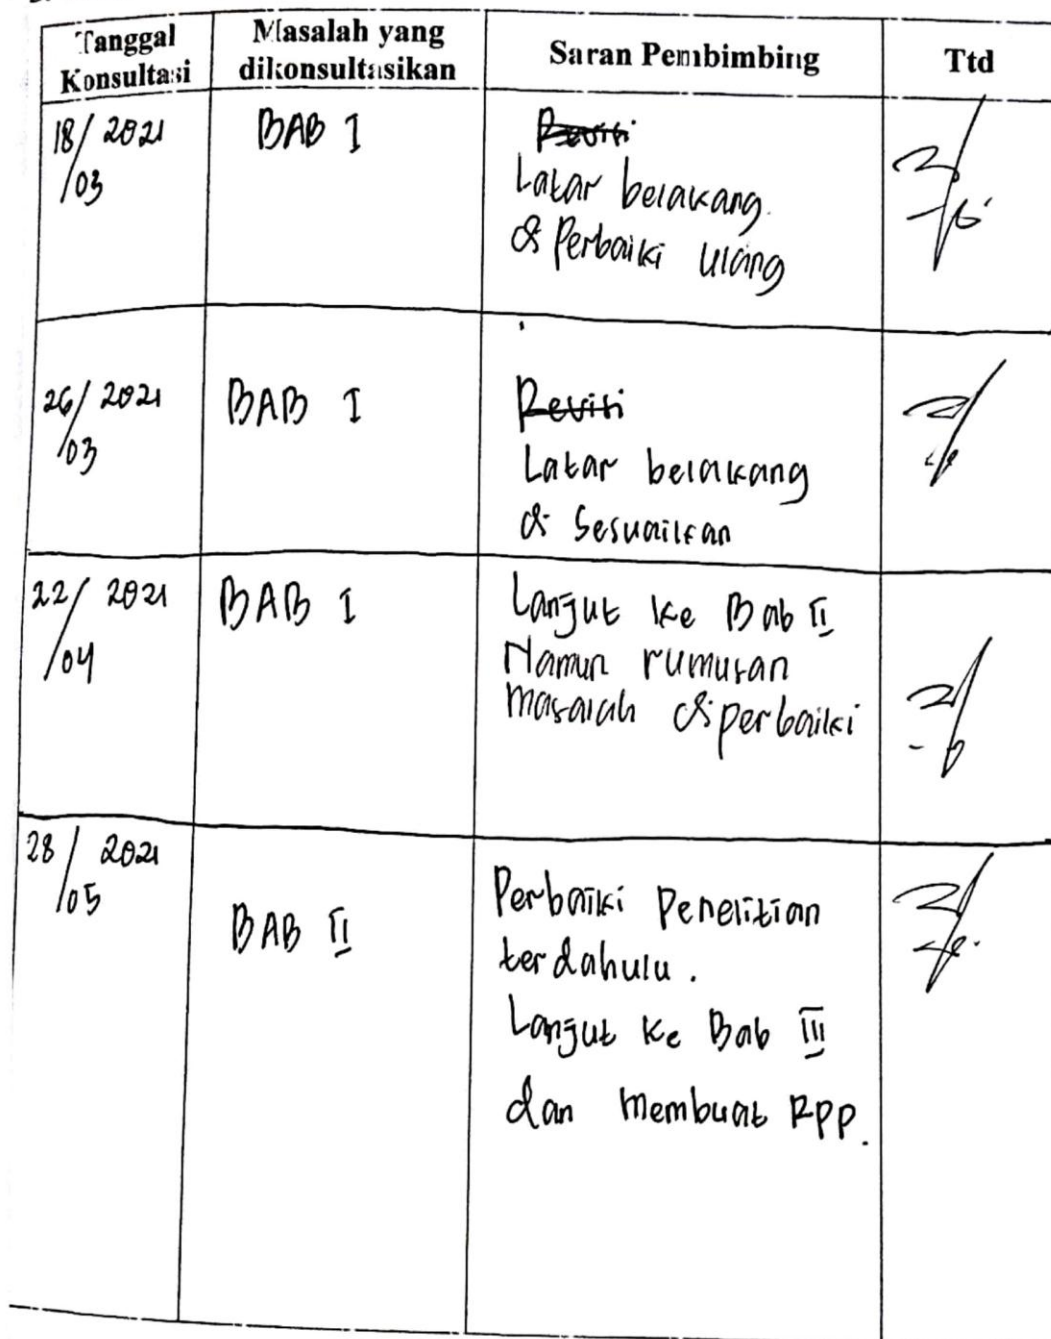 Tanggal Konsultasi
Masalah yang dikonsultasikan
Saran Pembimbing
Ttd
18/03 2021
BAB I
Revisi
Latar belakang.
diPerbaiki Ulang
26/03 2021
BAB I
Revisi
Latar belakang
di Sesuaikan
22/04 2021
BAB I
Lanjut ke Bab II
Namun rumusan
masalah diperbaiki
28/05 2021
BAB II
Perbaiki Penelitian
terdahulu.
Lanjut Ke Bab III
dan membuat RPP.